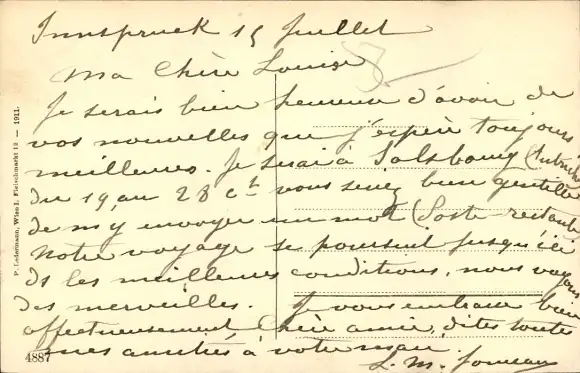 Innspruck 15 Juillet
Ma Chère Louise
Je serais bien heureuse d'avoir de
vos nouvelles que j'espère toujours
meilleures. Je serai à Salsbourg (Autriche
du 19 au 28 ct vous seriez bien gentille
de m'y envoyer un mot (Poste-restante
Notre voyage se poursuit jusqu'ici
ds les meilleures conditions, nous voyons
des merveilles. Je vous embrasse bien
affectueusement Chère amie, dites toutes
mes amitiés à votre mari.
L. M.
P. Ledermann, Wien I. Fleischmarkt 12 — 1911.
4887